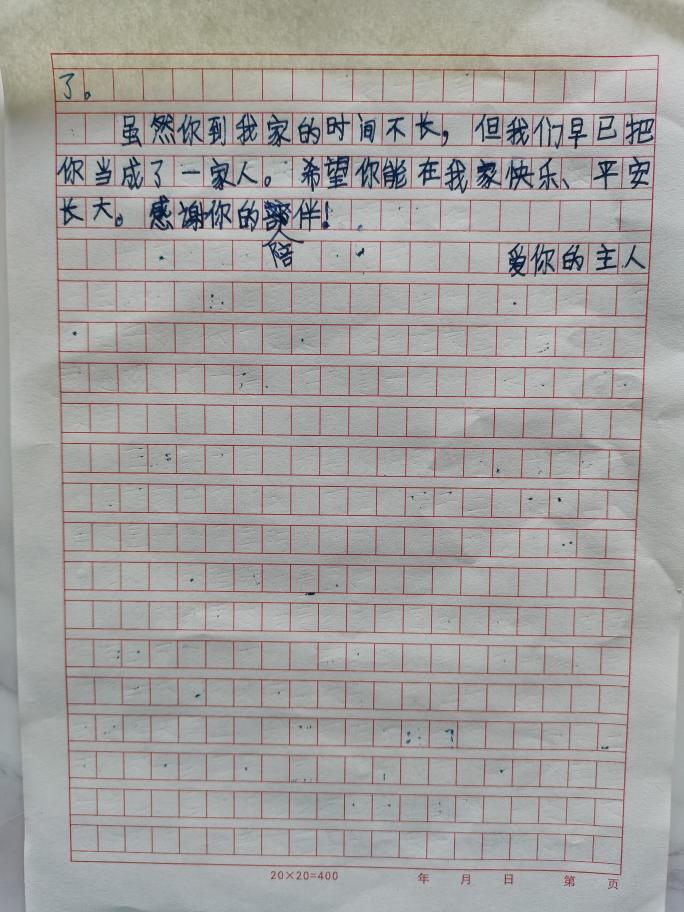 了。
虽然你到我家的时间不长，但我们早已把
你当成了一家人。希望你能在我家快乐、平安
长大。感谢你的陪伴！
爱你的主人
20×20=400 年 月 日 第 页